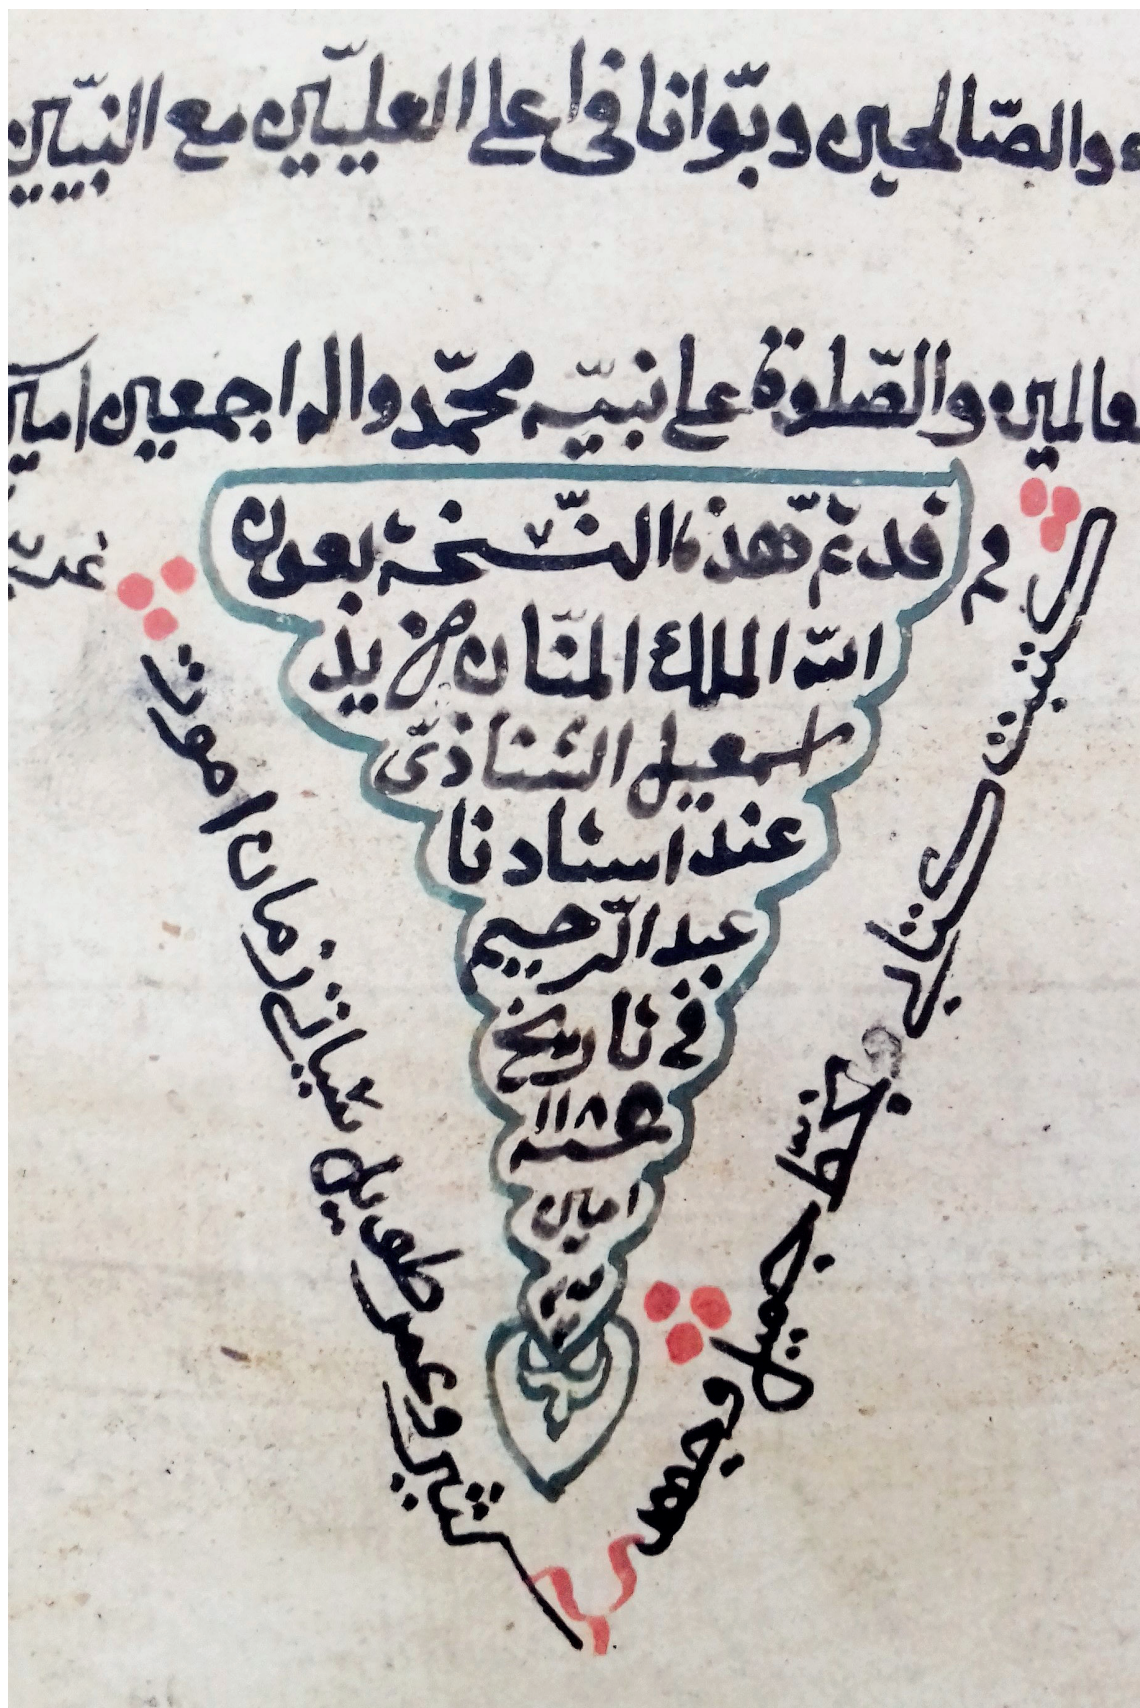 والصّالحين وبوّأنا فى اعلى العليّين مع النبيّين
عالمين والصّلوة على نبيّه محمّد واله اجمعين امين
قد تمّ هذه النّسخة بعون
الله الملك المنّان من يد
اسمعيل الشناذىّ
عند استادنا
عبد الرّحيم
فى تاريخ
١١٨٥
سنه
امين
كتبت كتابى بخط جميل وجهد
كثير وعمر طويل سياتى زمان اموت